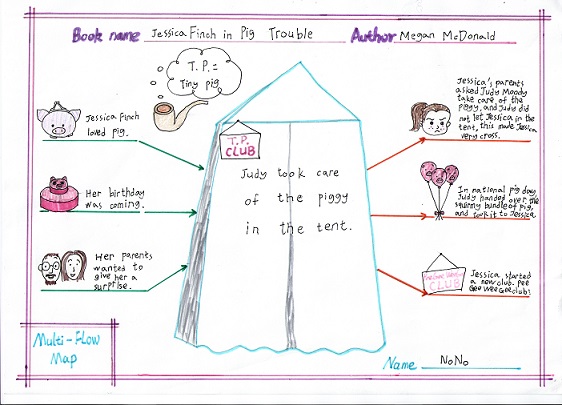 Book name Jessica Finch in Pig Trouble Author Megan McDonald
T.P. =
Tiny pig
Jessica Finch
loved pig.
Her birthday
was coming.
Her parents
wanted to
give her a
surprise.
T.P.
CLUB
Judy took care
of the piggy
in the tent.
Jessica's parents
asked Judy Moody
take care of the
piggy, and Judy did
not let Jessica in the
tent, this made Jessica
very cross.
In national pig day,
Judy handed over the
bundle of pig,
and took it to Jessica
CLUB
Jessica started
a new club. Pee
Gee Wee Gee club!
Multi-Flow
Map
Name NoNo